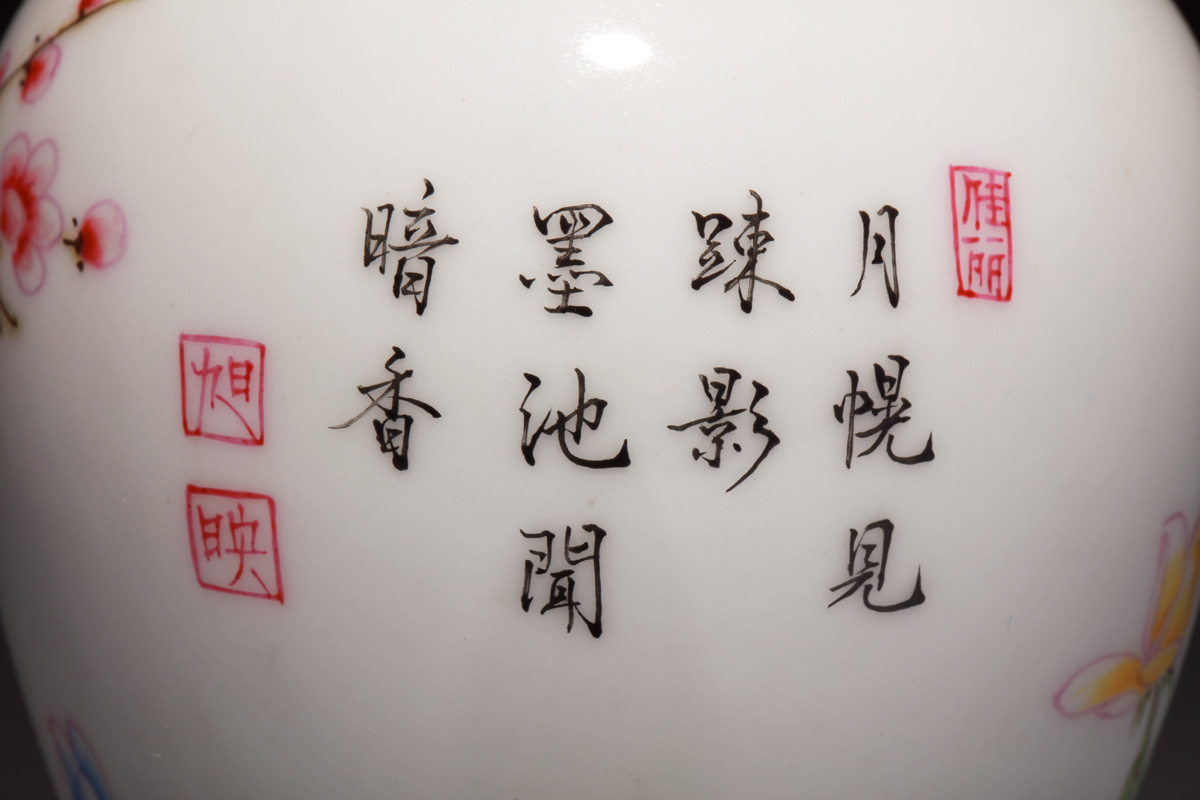 佳丽
月幌見
踈影
墨池聞
暗香
旭
映